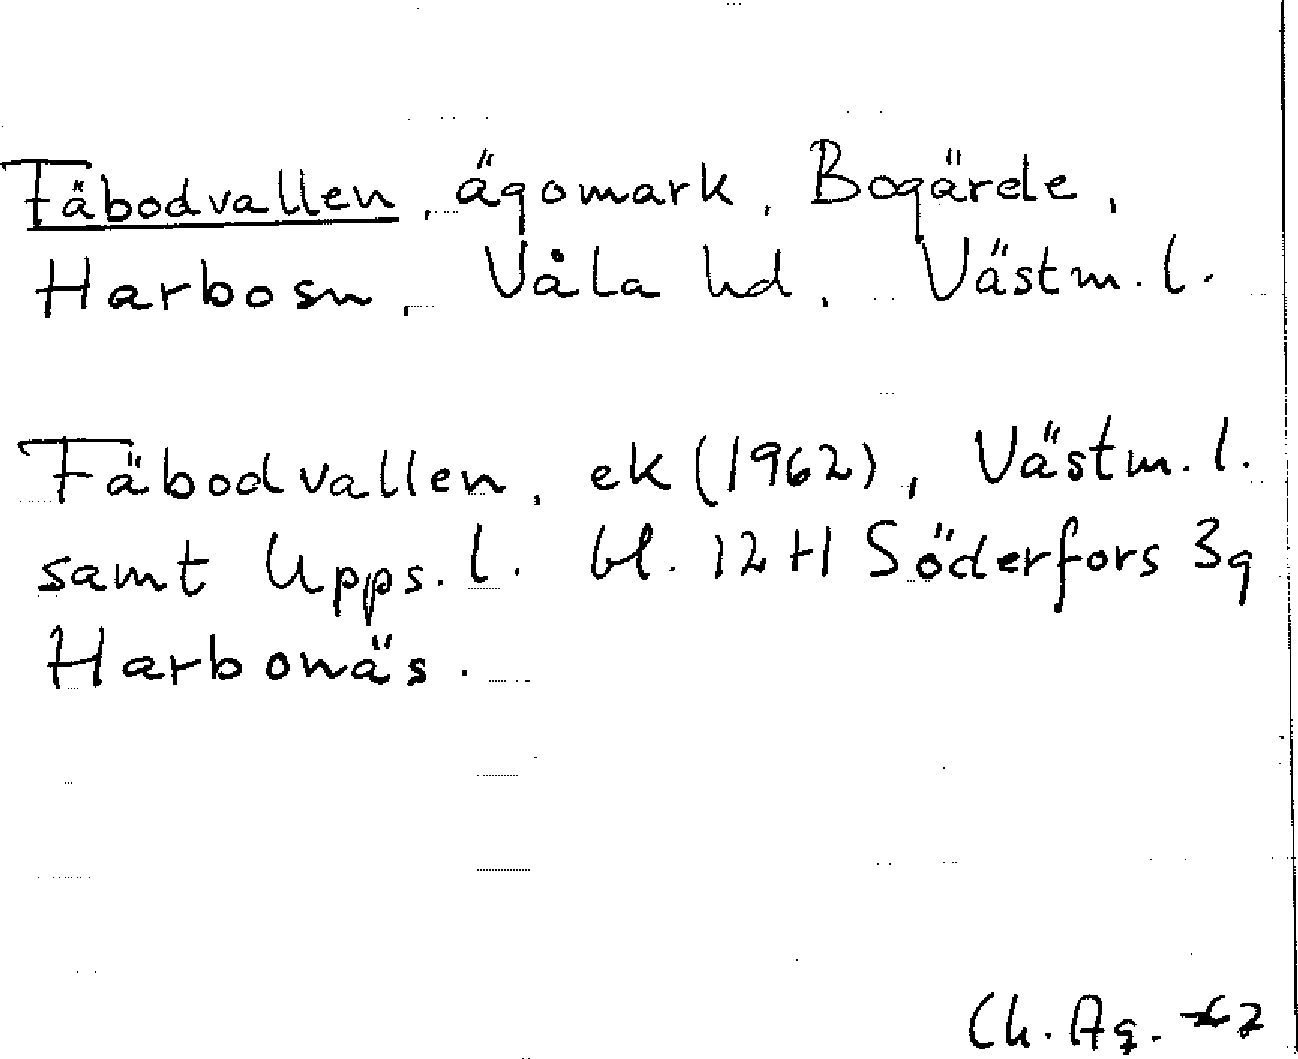 Fäbodvallen, ägomark, Bogärde,
Harbosn, Våla hd, Västm. l.
Fäbodvallen, ek (1962), Västm. l.
samt Upps. l. bl. 12 H Söderfors 3g
Harbonäs.
Ch. Ag.